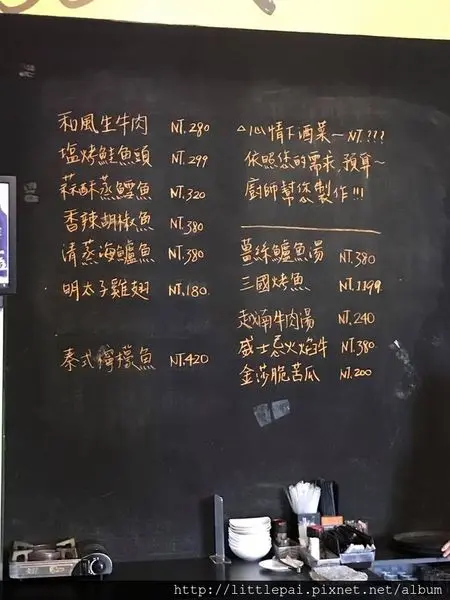 和風生牛肉 NT.280
塩烤鮭魚頭 NT.299
蒜酥蒸鱈魚 NT.320
香辣胡椒魚 NT.380
清蒸海鱸魚 NT.380
明太子雞翅 NT.180
泰式檸檬魚 NT.420
△心情下酒菜~NT.???
依照您的需求,預算~
廚師幫您製作!!!
薑絲鱸魚湯 NT.380
三國烤魚 NT.1199
越南牛肉湯 NT.240
威士忌火焰牛 NT.380
金莎脆苦瓜 NT.200
http://littlepai.pixnet.net/album